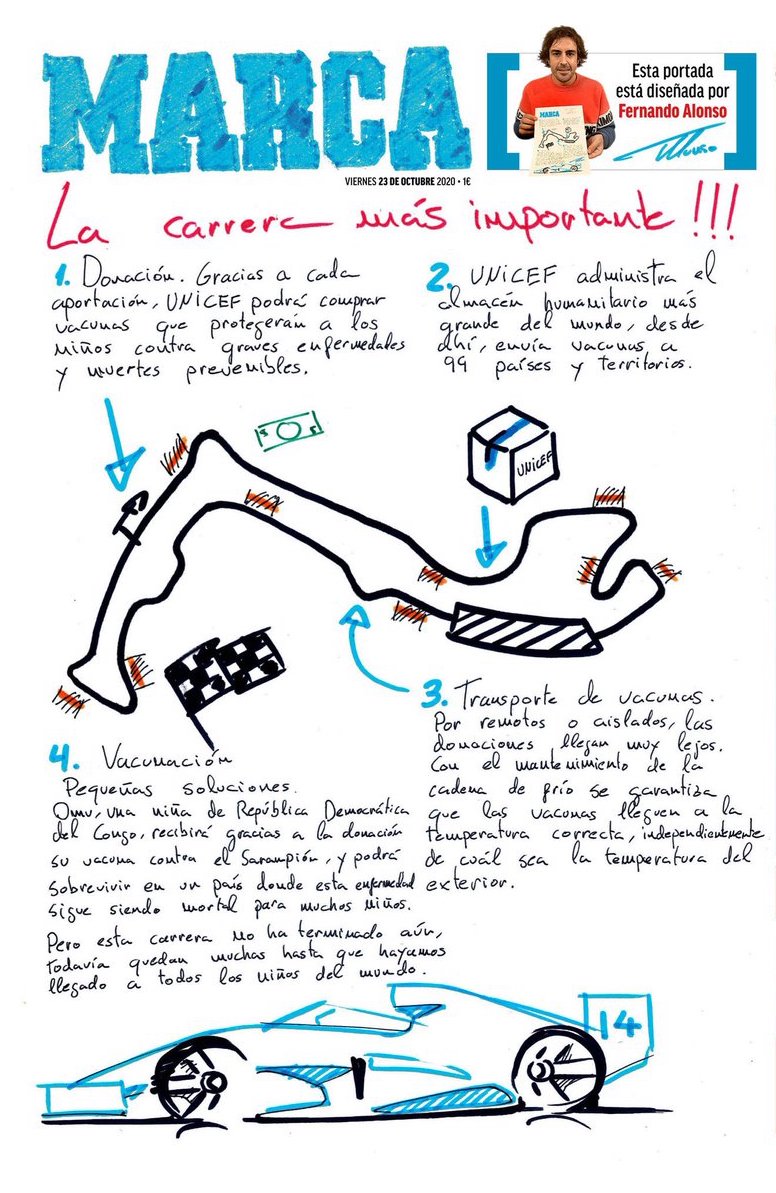 MARCA
Esta portada
está diseñada por
Fernando Alonso
VIERNES 23 DE OCTUBRE 2020 • 1€
La carrera más importante!!!
1. Donación. Gracias a cada
aportación, UNICEF podrá comprar
vacunas que protegerán a los
niños contra graves enfermedades
y muertes prevenibles.
2. UNICEF administra el
almacén humanitario más
grande del mundo, desde
ahí, envía vacunas a
99 países y territorios.
UNICEF
3. Transporte de vacunas.
Por remotos o aislados, las
donaciones llegan muy lejos.
Con el mantenimiento de la
cadena de frío se garantiza
que las vacunas lleguen a la
temperatura correcta, independientemente
de cuál sea la temperatura del
exterior.
4. Vacunación
Pequeñas soluciones.
Omv, una niña de República Democrática
del Congo, recibirá gracias a la donación
su vacuna contra el Sarampión, y podrá
sobrevivir en un país donde esta enfermedad
sigue siendo mortal para muchos niños.
Pero esta carrera no ha terminado aún,
todavía quedan muchas hasta que hayamos
llegado a todos los niños del mundo.
14